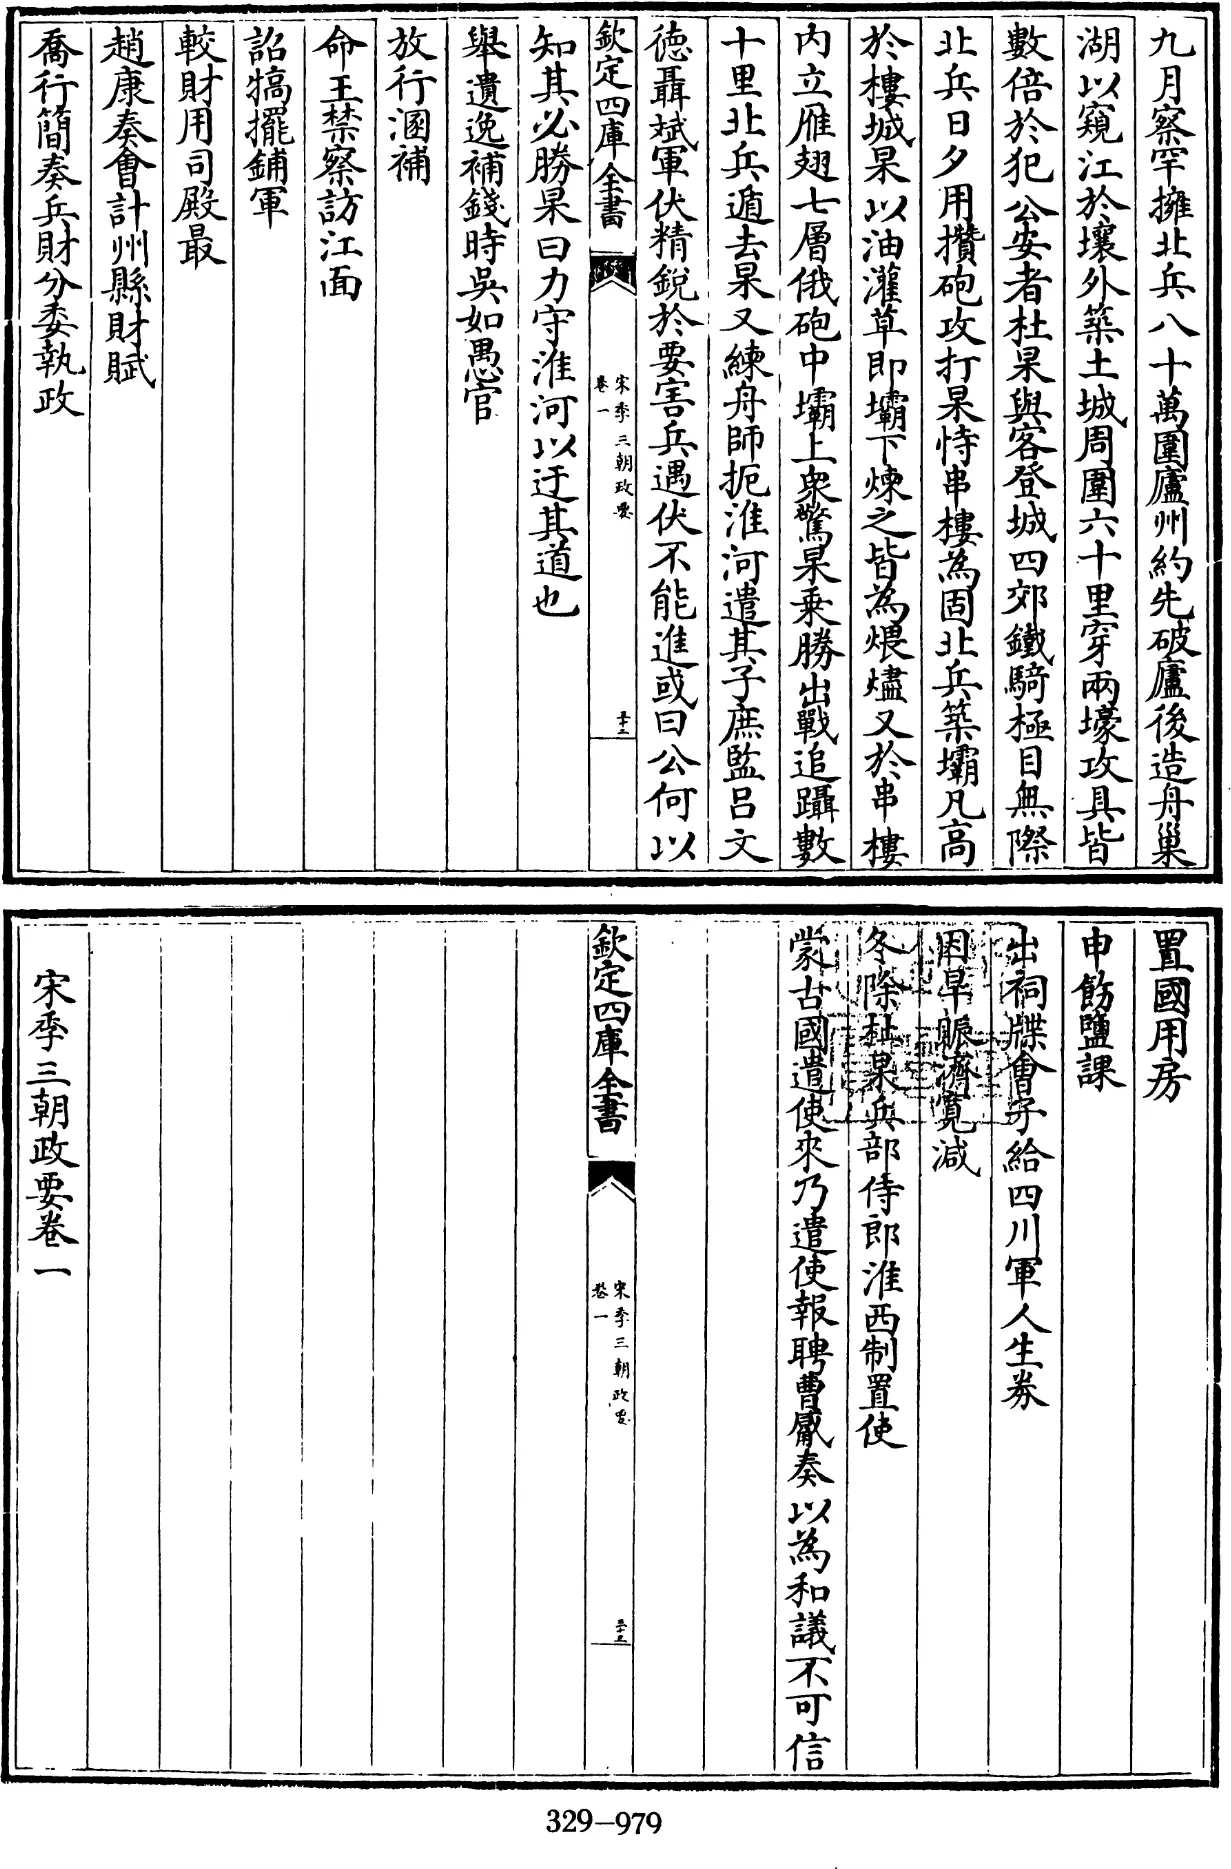 九月察罕擁北兵八十萬圍廬州約先破廬後造舟巢
湖以窺江於壕外築土城周圍六十里穿兩壕攻具皆
數倍於犯公安者杜杲與客登城四郊鐵騎極目無際
北兵日夕用攢砲攻打杲恃串樓為固北兵築壩凡高
於樓城杲以油灌草即壩下煉之皆為煨燼又於串樓
内立雁翅七層俄砲中壩上衆驚杲乗勝出戰追躡數
十里北兵遁去杲又練舟師扼淮河遣其子庶監吕文
徳聶斌軍伏精銳於要害兵遇伏不能進或曰公何以
欽定四庫全書
宋季三朝政要
卷一
知其必勝杲曰力守淮河以迂其道也
舉遺逸補錢時吳如愚官
放行溷補
命王禁察訪江面
詔犒擺鋪軍
較財用司殿最
趙康奏會計州縣財賦
喬行簡奏兵財分委執政
置國用房
申飭鹽課
出祠牒會子給四川軍人生券
因旱賑濟寛減
冬除杜杲兵部侍郎淮西制置使
蒙古國遣使來乃遣使報聘曹豳奏以為和議不可信
欽定四庫全書
宋季三朝政要
卷一
宋季三朝政要卷一
329-979